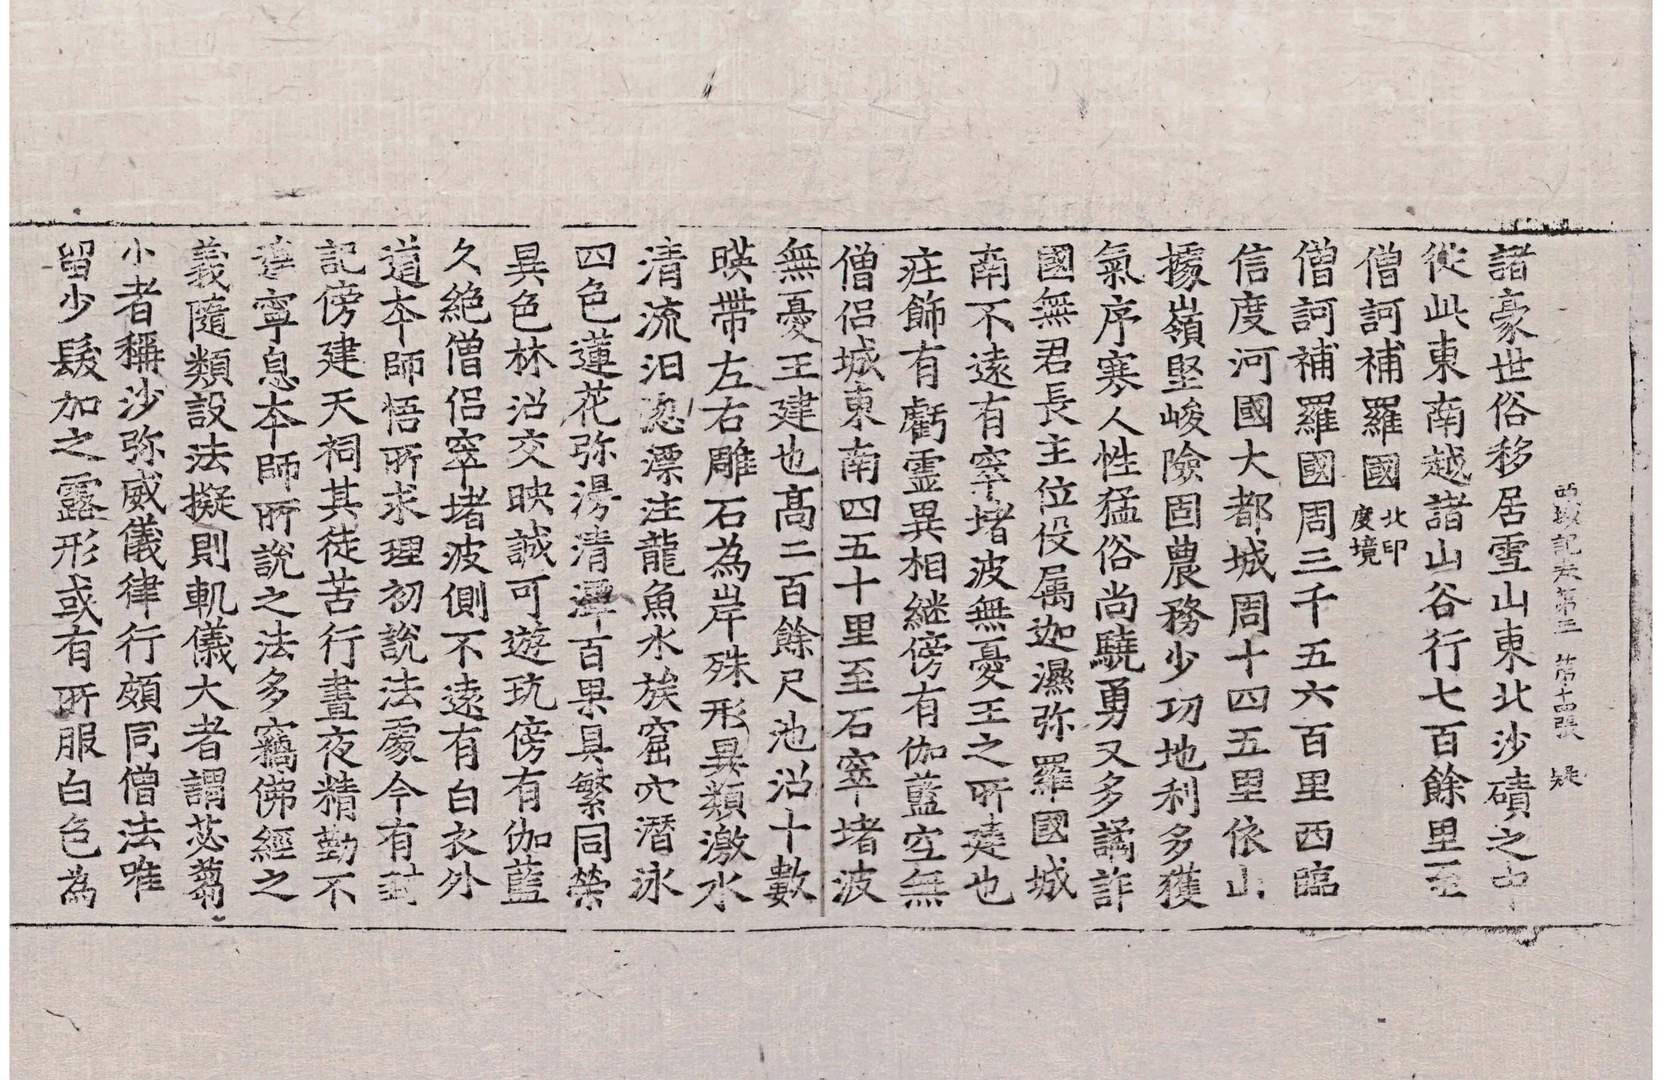 西域記卷第三 第十四張 疑
諸豪世俗移居雪山東北沙磧之中
從此東南越諸山谷行七百餘里至
僧訶補羅國北印度境
僧訶補羅國周三千五六百里西臨
信度河國大都城周十四五里依山
據嶺堅峻險固農務少功地利多獲
氣序寒人性猛俗尚驍勇又多譎詐
國無君長主位役属迦濕弥羅國城
南不遠有窣堵波無憂王之所建也
庄飾有虧霊異相継傍有伽藍空無
僧侣城東南四五十里至石窣堵波
無憂王建也髙二百餘尺池沼十數
暎帶左右雕石為岸殊形異類激水
清流汩淴漂注龍魚水族窟穴潛泳
四色蓮花弥漫清潭百果具繁同榮
異色林沼交映誠可遊玩傍有伽藍
久絶僧侣窣堵波側不遠有白衣外
道夲師悟所求理初説法處今有封
記傍建天祠其徒苦行晝夜精勤不
遑寧息夲師所説之法多竊佛經之
義隨類設法擬則軌儀大者謂苾蒭
小者稱沙弥威儀律行頗同僧法唯
留少髮加之露形或有所服白色為